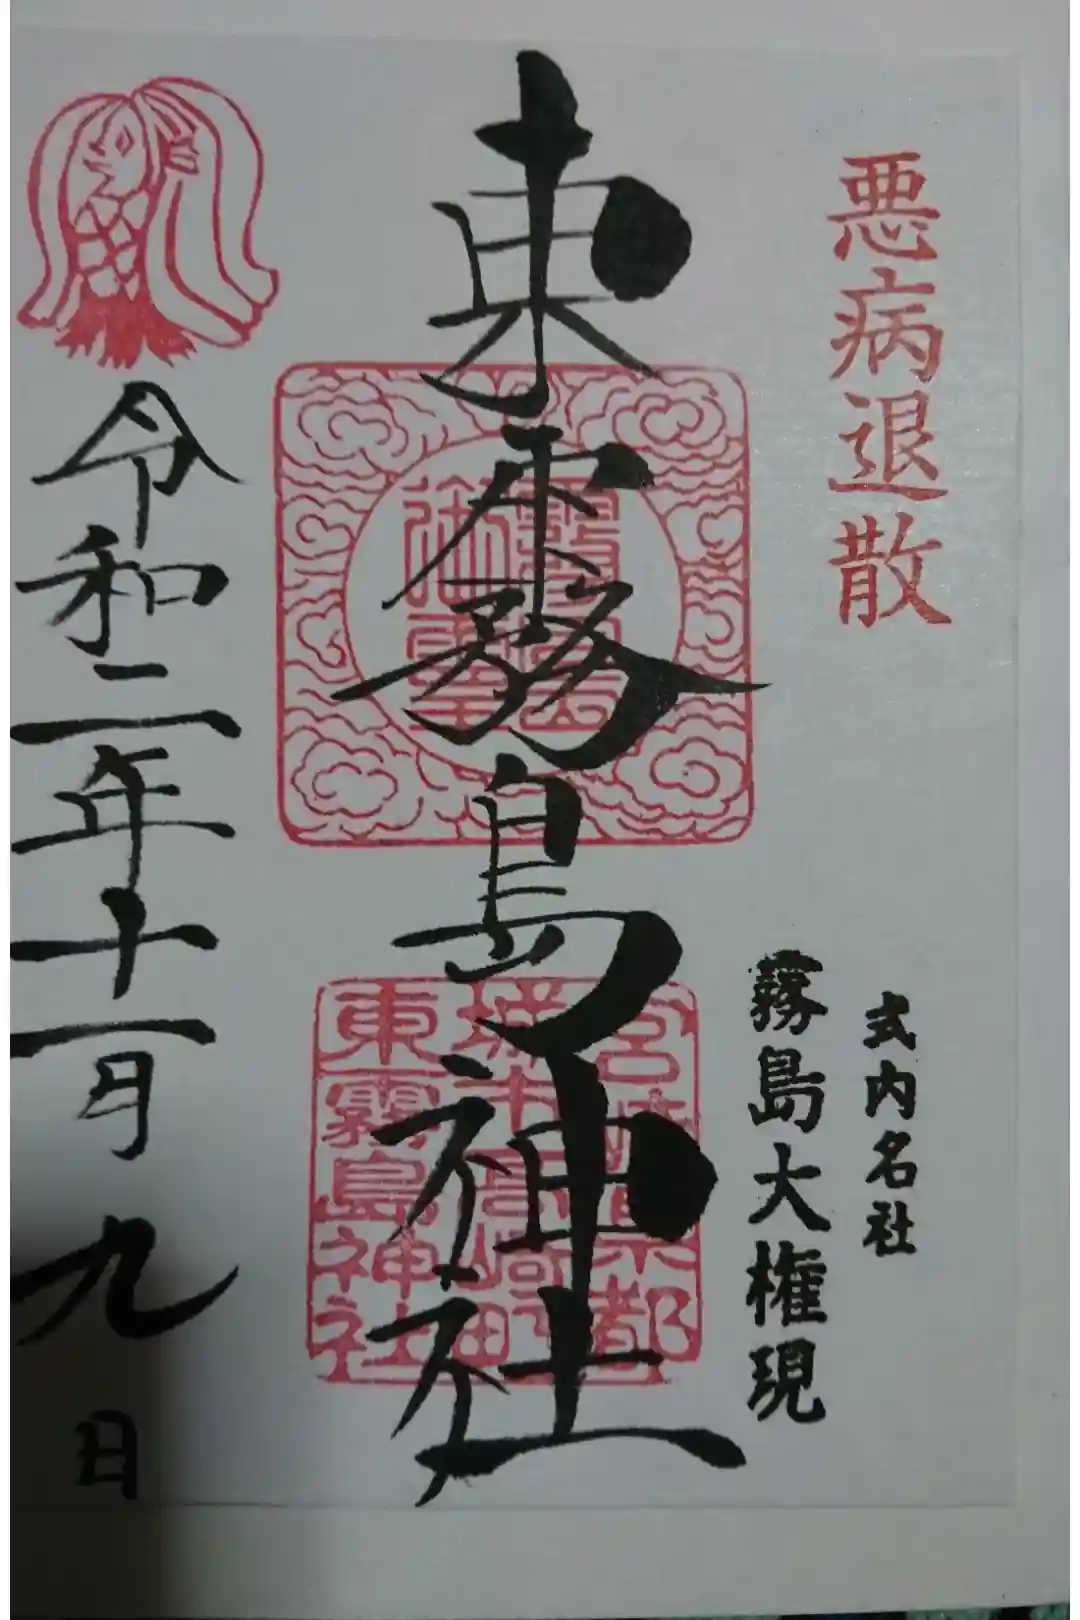 悪病退散
式内名社
霧島大権現
東霧島神社
宮崎県都
城市高崎町
東霧島神社
令和二年十一月九日